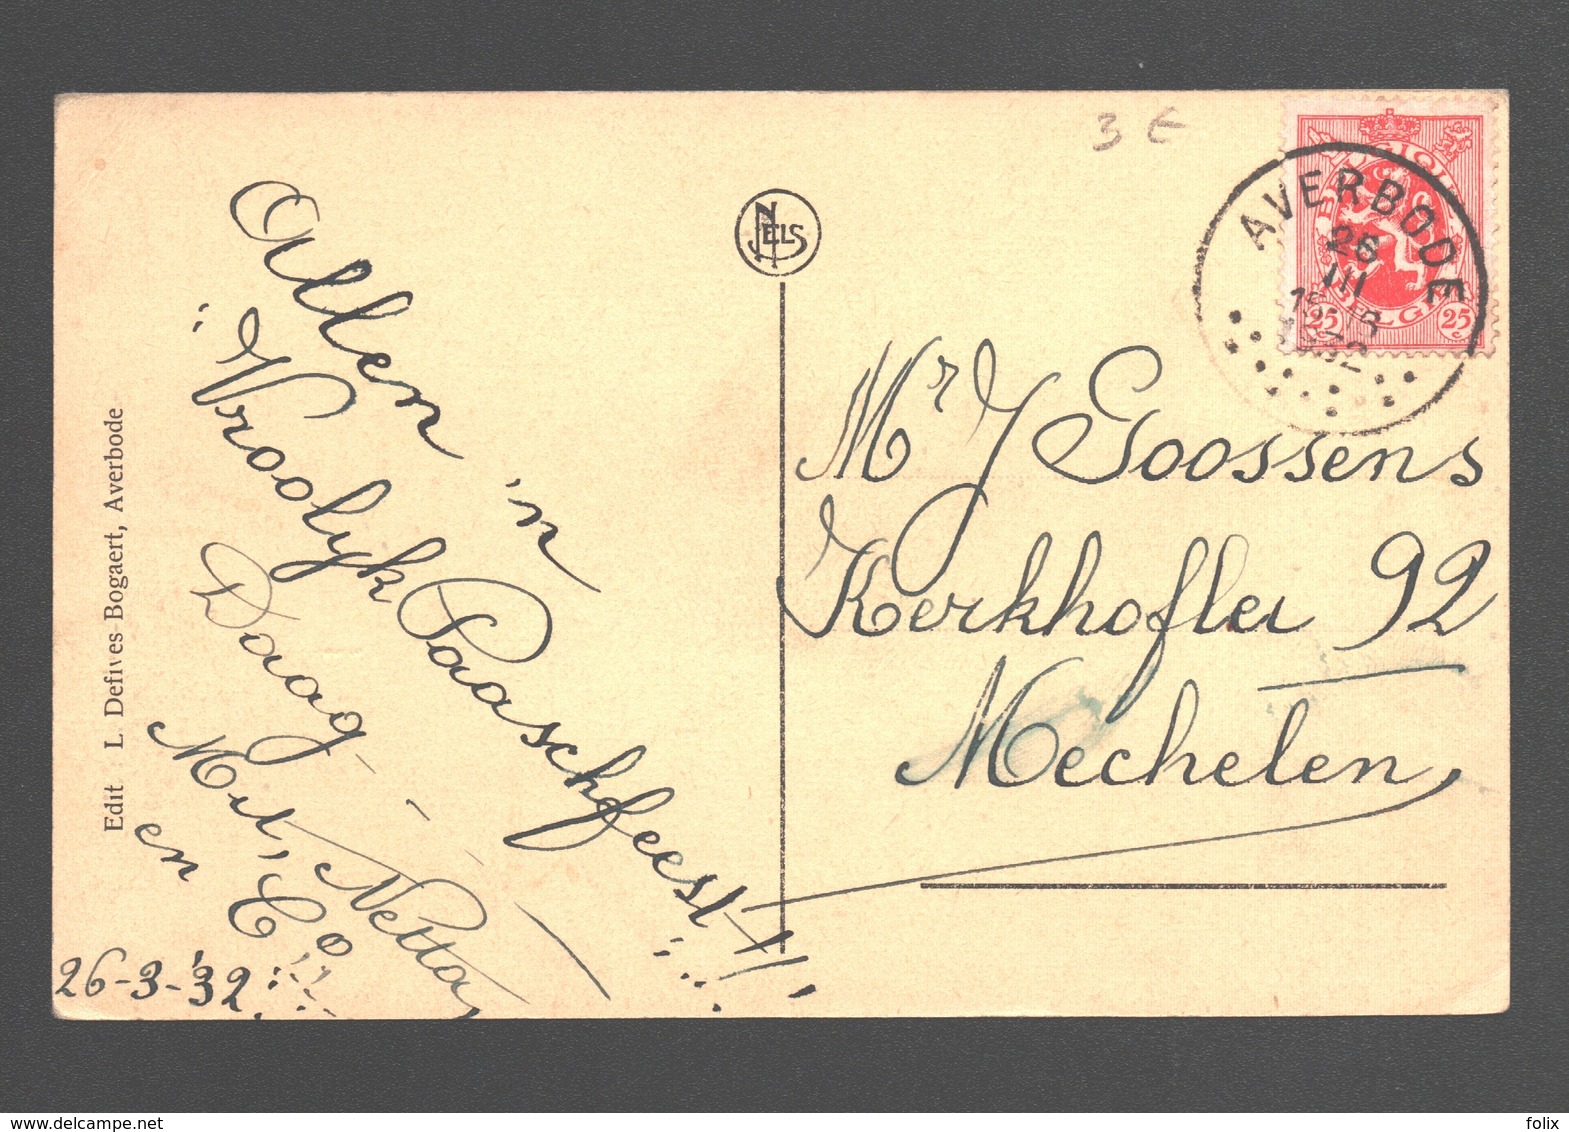 3 €
Allen 'n
Vroolyk Paaschfeest!!
Daag
Met, Netta,
en Co
26-3-'32
Edit : L. Defives Bogaert, Averbode
NELS
Mr J Goossens
Kerkhoflei 92
Mechelen,
AVERBODE
26
III
32
25
25
delcampe.net
folix